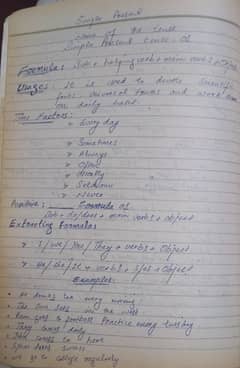 Simple Present
Name of the tense
Simple Present tense of
Formula: Sub + helping verb + main verb + object
Usage: It is used to denote scientific
facts, universal truths and work done
on daily basis.
Time Factors:
> Every day
> Sometimes
> Always
> Often
> Usually
> Seldom
> Never
Positive: Formula of
Sub + do/does + main verb + object
Extracting Formulas
> I/we/You/They + verb + Object
> He/She/It + verb + s/es + Object
Examples
He drinks tea every morning
The Sun sets in the west
Ram goes to football practice every tuesday
They dance daily